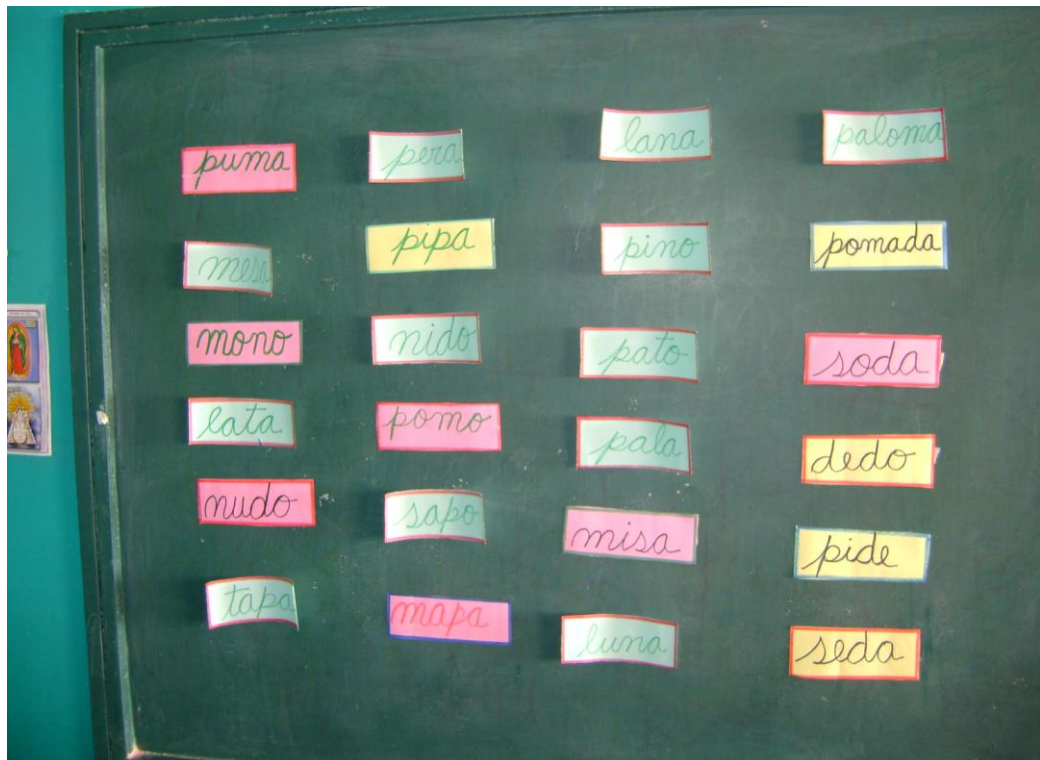 puma
mesa
mono
lata
nudo
tapa
pera
pipa
nido
pomo
sapo
mapa
lana
pino
pato
pala
misa
luna
paloma
pomada
soda
dedo
pide
seda